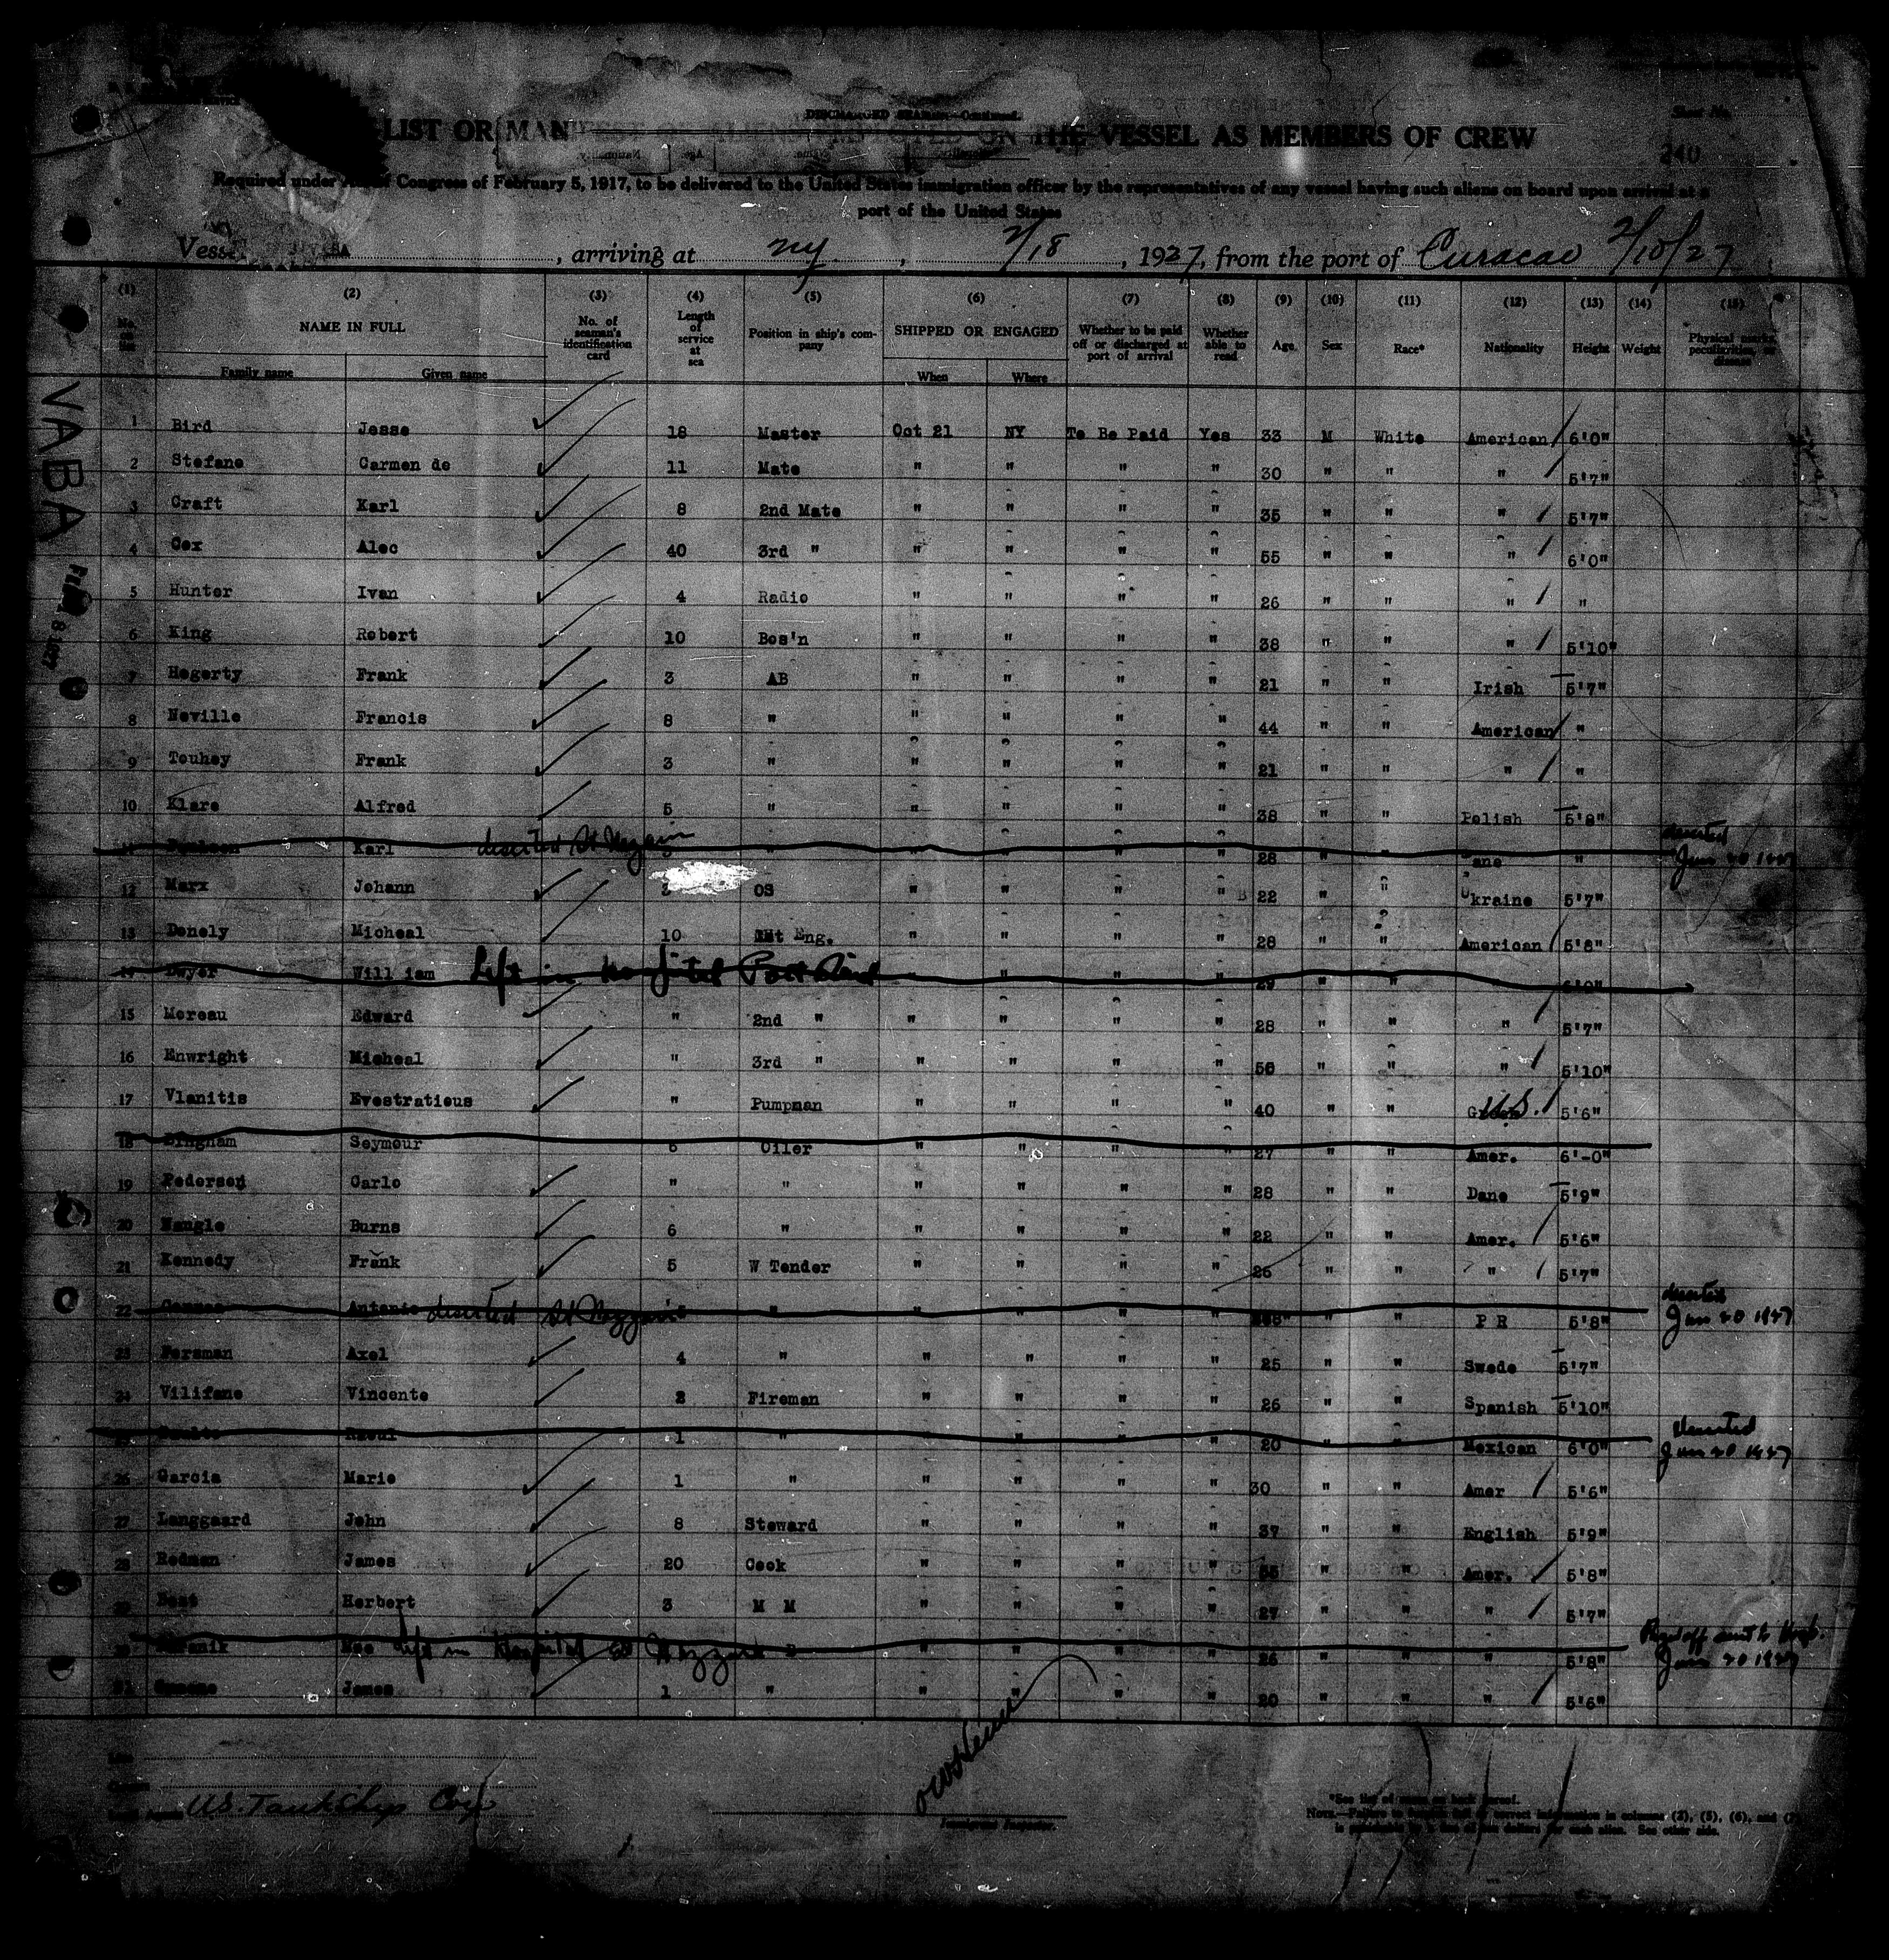 DISCHARGED SEAMEN—Continued.
LIST OR MAN THE VESSEL AS MEMBERS OF CREW
240
Required under Congress of February 5, 1917, to be delivered to the United States immigration officer by the representatives of any vessel having such aliens on board upon arrival at a
port of the United States
Vessel , arriving at NY , 2/18 , 1927, from the port of Curacao 2/10/27
(1) (2) (3) (4) (5) (6) (7) (8) (9) (10) (11) (12) (13) (14) (15)
No. on list NAME IN FULL No. of seaman's identification card Length of service at sea Position in ship's company SHIPPED OR ENGAGED Whether to be paid off or discharged at port of arrival Whether able to read Age Sex Race* Nationality Height Weight Physical marks, peculiarities, or disease
Family name Given name When Where
VABA
1 Bird Jesse 18 Master Oct 21 NY To Be Paid Yes 33 M White American 6'0"
2 Stefano Carmen de 11 Mate " " " " 30 " " " 5'7"
3 Craft Karl 8 2nd Mate " " " " 35 " " " 5'7"
4 Cox Alec 40 3rd " " " " " 55 " " " 6'0"
5 Hunter Ivan 4 Radio " " " " 26 " " " "
6 King Robert 10 Bos'n " " " " 38 " " " 5'10"
7 Hegerty Frank 3 AB " " " " 21 " " Irish 5'7"
8 Neville Francis 8 " " " " " 44 " " American "
9 Touhey Frank 3 " " " " " 21 " " " "
10 Klare Alfred 5 " " " " " 38 " " Polish 5'8"
11 Karl deserted St Nazair " " " " " 28 " " Dane " deserted Jan 20 1927
12 Marx Johann OS " " " " 22 " " Ukraine 5'7"
13 Donely Micheal 10 Eng. " " " " 28 " " American 5'8"
14 Dwyer William Left in hospital " " " 29 " " " 6'0"
15 Moreau Edward " 2nd " " " " " 28 " " " 5'7"
16 Enwright Micheal " 3rd " " " " " 56 " " " 5'10"
17 Vlanitis Evestratious " Pumpman " " " " 40 " " U.S. 5'6"
18 Bingham Seymour 6 Oiler " " " " 27 " " Amer. 6'-0"
19 Pedersen Carlo " " " " " " 28 " " Dane 5'9"
20 Nangle Burns 6 " " " " " 22 " " Amer. 5'6"
21 Kennedy Frank 5 W Tender " " " " 26 " " " 5'7"
22 Antonio deserted St Nazzair " " " " " " " P R 5'8" deserted Jan 20 1927
23 Forsman Axel 4 " " " " " 25 " " Swede 5'7"
24 Vilifane Vincente 2 Fireman " " " " 26 " " Spanish 5'10"
Raoul 1 " " " " " 20 " " Mexican 6'0" deserted Jan 20 1927
26 Garcia Mario 1 " " " " " 30 " " Amer 5'6"
27 Langgaard John 8 Steward " " " " 37 " " English 5'9"
28 Redman James 20 Cook " " " " 55 " " Amer. 5'8"
29 Best Herbert 3 M M " " " " 27 " " " 5'7"
left in Hospital St Nazzair " " " " 26 " " " 5'8" Jan 20 1927
31 James 1 " " " " " 20 " " " 5'6"
US. Tankship Corp
Immigrant Inspector.
*See list of races on back hereof.
NOTE.—Failure to furnish full or correct information in columns (2), (5), (6), and (7)
is punishable by a fine of ten dollars for each alien. See other side.